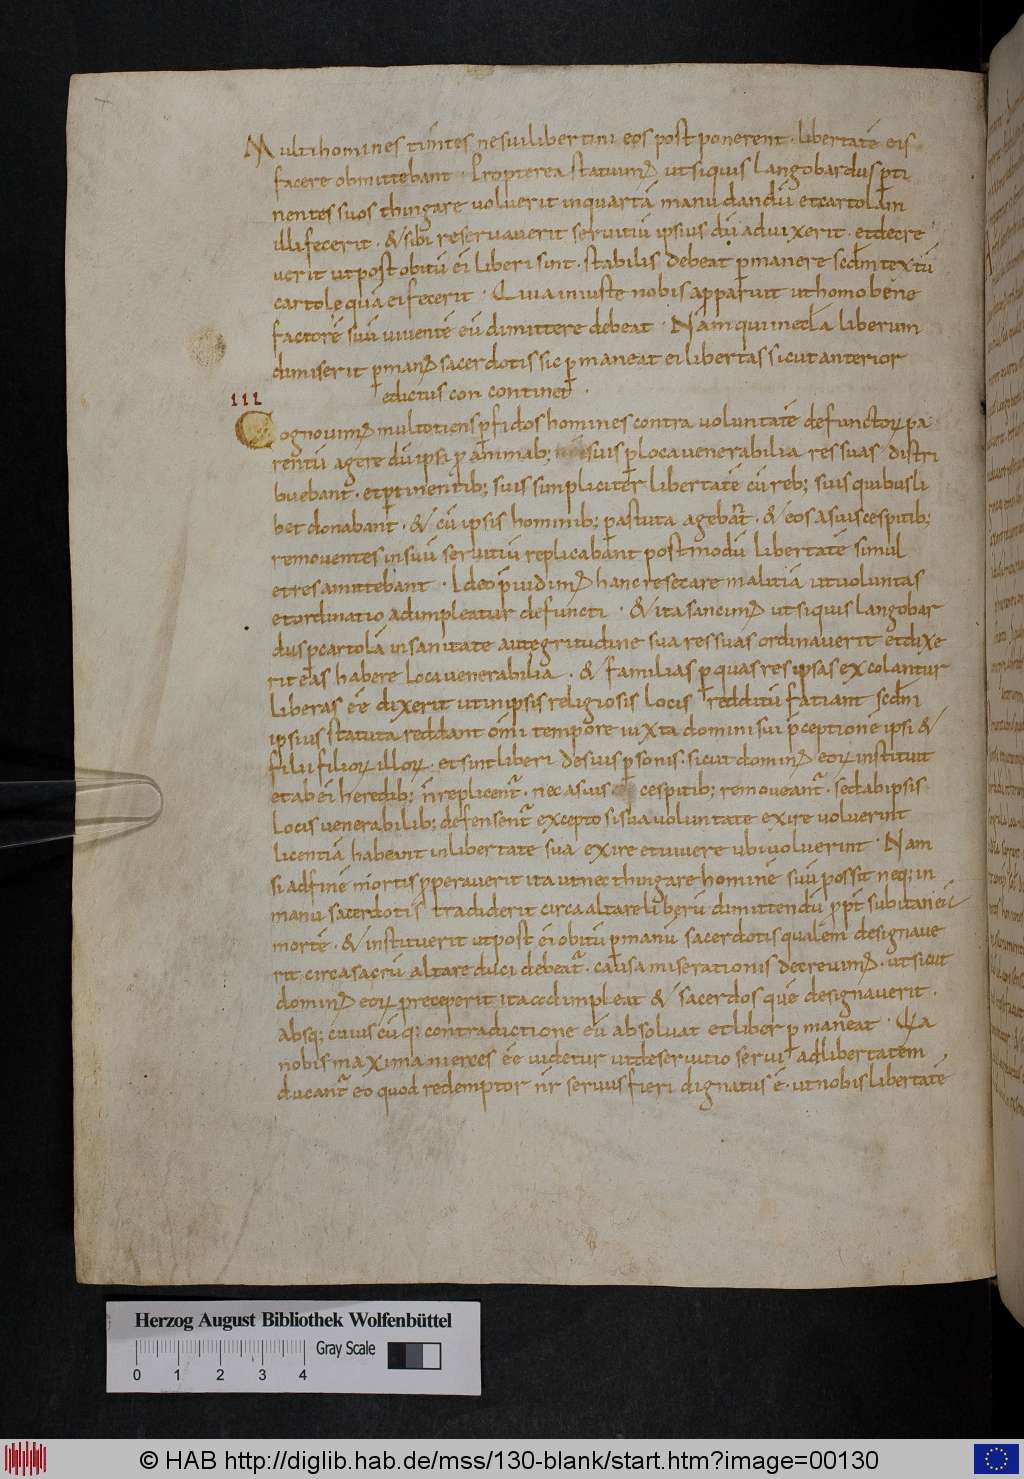 Multi homines timtes ne sui libertini eos postponerent · libertatē eis
facere obmittebant · Propterea statuim; ut si quis langobardus pti
nentes suos thingare voluerit in quartā manu dandū et cartolam
illi fecerit · & sibi reservaverit servitiū ipsius dū advixerit · et decre
verit ut post obitū ei liberi sint · stabilis debeat pmanere scdm textū
cartole quā ei fecerit · Quia iniuste nobis apparuit ut homo bene
factorē suū viventē eū dimittere debeat · Nam qui in ecla liberum
dimiserit p man; sacerdotis sic pmaneat ei libertas sicut anterior
edictus con continet ·
III
Cognovim; multotiens pfidos homines contra voluntatē defunctor pa
rentū agere dū ipsi p animab; suis p loca venerabilia res suas distri
buebant · et ptinentib; suis simpliciter libertatē cū reb; suis quibusli
bet donabant · & cū ipsis hominib; p astuta agebat · & eos a suis cespitib;
removentes in suū servitiū replicabant postmodū libertatē simul
et res amittebant · Ideo pvidim; hanc resecare malitiā ut voluntas
et ordinatio adimpleatur defuncti · & ita sancim; ut si quis langobar
dus p cartolā in sanitate aut egritudine sua res suas ordinaverit et dixe
rit eas habere loca venerabilia · & familias p quas res ipsas excolantur
liberas eē dixerit ut in ipsis religiosis locis redditū fatiant scdm
ipsius statuta reddant omi tempore iuxta domini sui pceptionē ipsi &
filii filior illor · et sint liberi de suis psonis · sicut domin; eor instituit
et ab ei heredib; n replicent · nec a suis cespitib; removeant · sed ab ipsis
locis venerabilib; defensent excepto si sua voluntate exire voluerint
licentiā habeant in libertate sua exire et vivere ubi voluerint · Nam
si ad finē mortis pperaverit ita ut nec thingare hominē suū possit neq; in
manu sacerdotis tradiderit circa altare liberū dimittendū ppt subitaneā
mortē · & instituerit ut post ei obitū p manū sacerdotis qualem designave
rit circa sacrū altare duci debeat · causa miserationis decrevim; · ut sicut
domin; eor preceperit ita adimpleat & sacerdos quē designaverit ·
absq; cuius cūq; contradictione eū absolvat et liber pmaneat · Qa
nobis maxima merces eē videtur ut de servitio servi ad libertatem
ducant eo quod redemptor nr servus fieri dignatus ē · ut nobis libertatē
Herzog August Bibliothek Wolfenbüttel
Gray Scale
0 1 2 3 4
© HAB http://diglib.hab.de/mss/130-blank/start.htm?image=00130